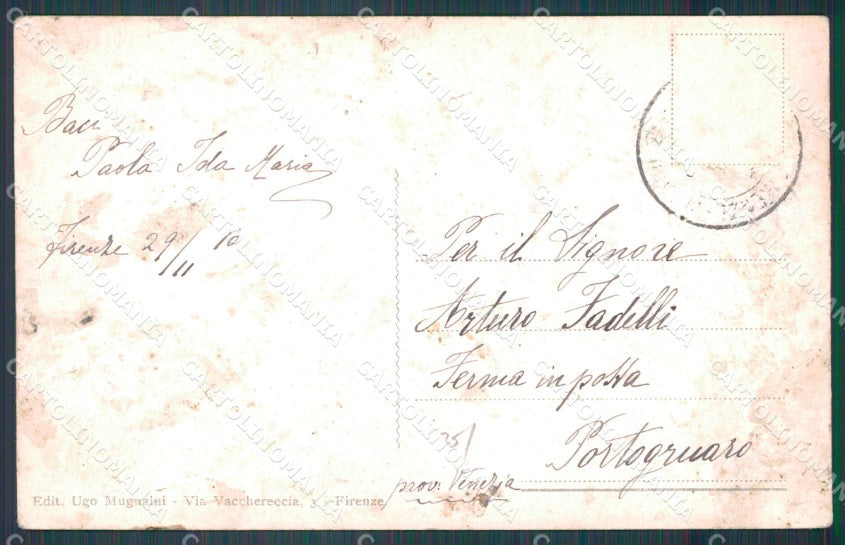 Baci
Paola Ida Maria
Firenze 29/11 10
Per il Signore
Arturo Fadelli
Ferma in posta
Portogruaro
prov. Venezia
Edit. Ugo Mugnaini - Via Vacchereccia, 3 - Firenze
CARTOLINOMANIA